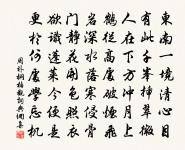 東南一境清心目
有此千峰插翠微
人在下方冲月上
鶴從高處破煙飛
巖深水落寒侵骨
門靜花開色照衣
欲識蓬萊今便是
更於何處學忘机
周朴桐柏觀